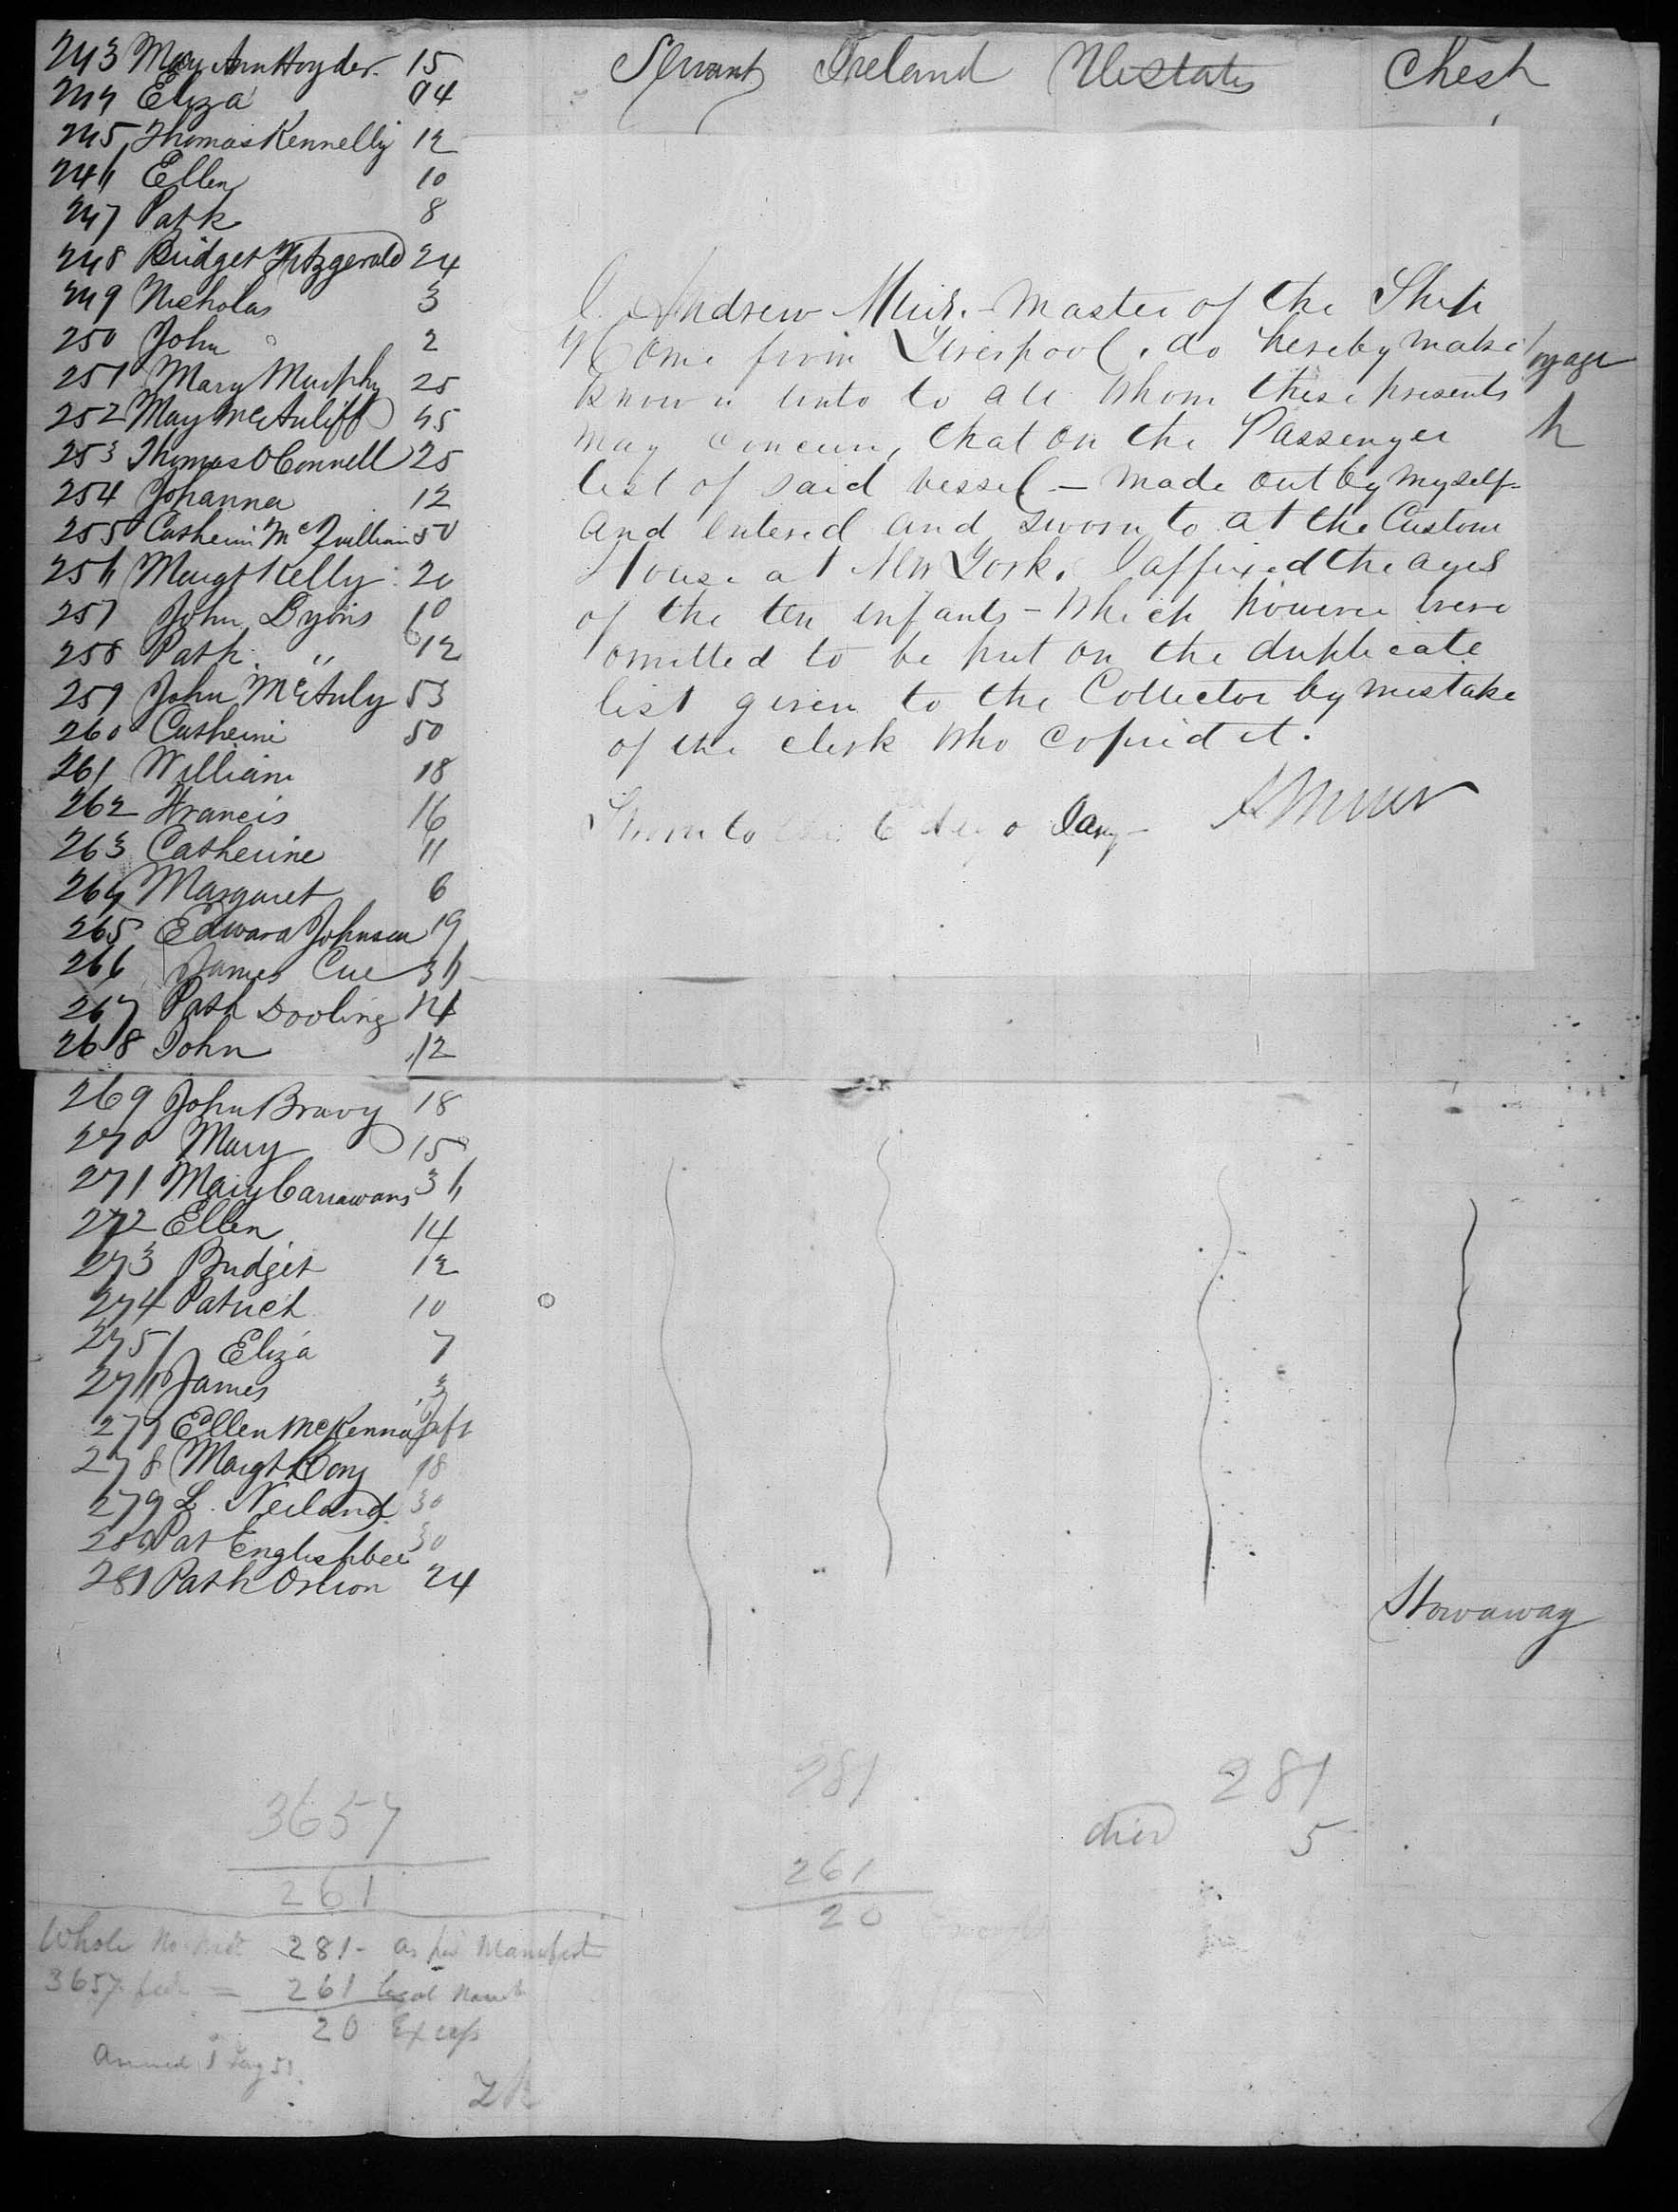 243 Mary Ann Hoyder 15 Servant Ireland UeStates Chest
244 Eliza 14
245 Thomas Kennelly 12
246 Ellen 10
247 Patk 8
248 Bridget Fitzgerald 24
249 Nicholas 3
250 John " 2
251 Mary Murphy 25
252 May McAuliff 45
253 Thomas OConnell 25
254 Johanna 12
255 Catherin McQuillian 50
256 Margt Kelly 20
257 John Lyons 10
258 Patk " 12
259 John McAuly 53
260 Catherine 50
261 William 18
262 Francis 16
263 Catherine 11
264 Margaret 6
265 Edward Johnson 19
266 James Cue 36
267 Patk Dooling 14
268 John 12
I Andrew Muir - Master of the Ship
Rome from Liverpool, do hereby make
known unto to all whom these presents
may concern, that on the Passenger
list of said vessel - made out by myself
and entered and sworn to at the Custom
House at New York, I affixed the ages
of the ten infants - which however were
omitted to be put on the duplicate
list given to the Collector by mistake
of the clerk who copied it.
Sworn to 6 day o Jany - A Muir
voyage
h
269 John Bravy 18
270 Mary 15
271 Mary Carrawans 36
272 Ellen 14
273 Bridget 12
274 Patrick 10
275 Eliza 7
276 James 3
277 Ellen McKenna Inft
278 Margt 18
279 L. Neiland 30
280 Pat Englishbee 30
281 Patk Orlion 24 Stowaway
3657
261
281
261
20
281
died 5
Whole No 281 - as per Manifest
3657 feet = 261 legal Numb
20 Excess
Arrived 1 Jany 51